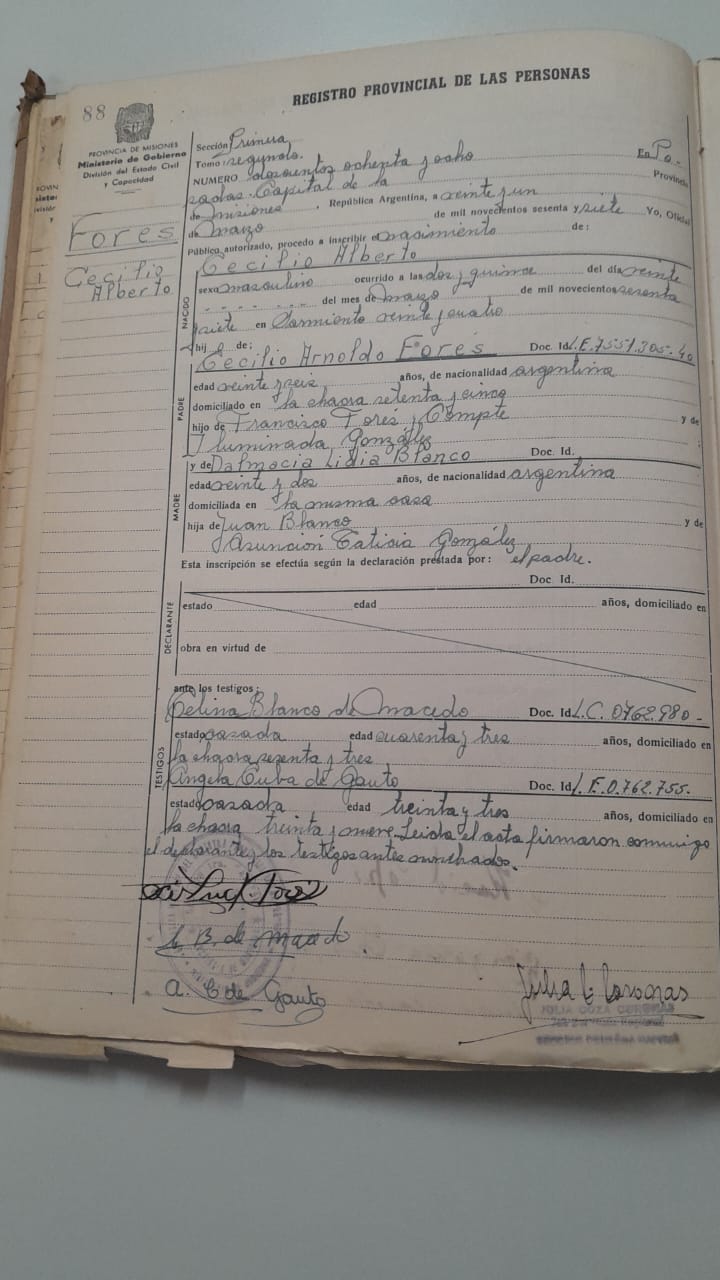 88
REGISTRO PROVINCIAL DE LAS PERSONAS
PROVINCIA DE MISIONES
Ministerio de Gobierno
División del Estado Civil
y Capacidad
Fores
Cecilio
Alberto
Sección Primera
Tomo: segundo.
NUMERO doscientos ochenta y ocho En Po-
sadas. Capital de la Provincia
de Misiones, República Argentina, a veinte y un
de marzo de mil novecientos sesenta y siete Yo, Oficial
Público autorizado, procedo a inscribir el nacimiento de:
Cecilio Alberto
NACIDO
sexo masculino ocurrido a las dos y quince del día veinte
del mes de marzo de mil novecientos sesenta
y siete en Sarmiento veinte y cuatro
hijo de:
Cecilio Arnoldo Fores Doc. Id. L.E. 7551.305-
PADRE
edad veinte y seis años, de nacionalidad argentina
domiciliado en la chacra setenta y cinco
hijo de Francisco Fores y Compte y de
Iluminada González
y de Dalmacia Lidia Blanco Doc. Id.
MADRE
edad veinte y dos años, de nacionalidad argentina
domiciliada en la misma casa
hija de Juan Blanco y de
Asunción Leticia González
Esta inscripción se efectúa según la declaración prestada por: el padre.
Doc. Id.
DECLARANTE
estado edad años, domiciliado en
obra en virtud de
ante los testigos:
Celina Blanco de Macedo Doc. Id. L.C. 0762.980-
TESTIGOS
estado casada edad cuarenta y tres años, domiciliado en
la chacra sesenta y tres
Angela Cuba de Gauto Doc. Id. 0.762.755.
estado casada edad treinta y tres años, domiciliado en
la chacra treinta y nueve. Leída el acta firmaron conmigo
el declarante y los testigos antes nombrados.
C. B. de Macedo
A. C de Gauto
Julia C Coronas
JULIA COZA CORONAS